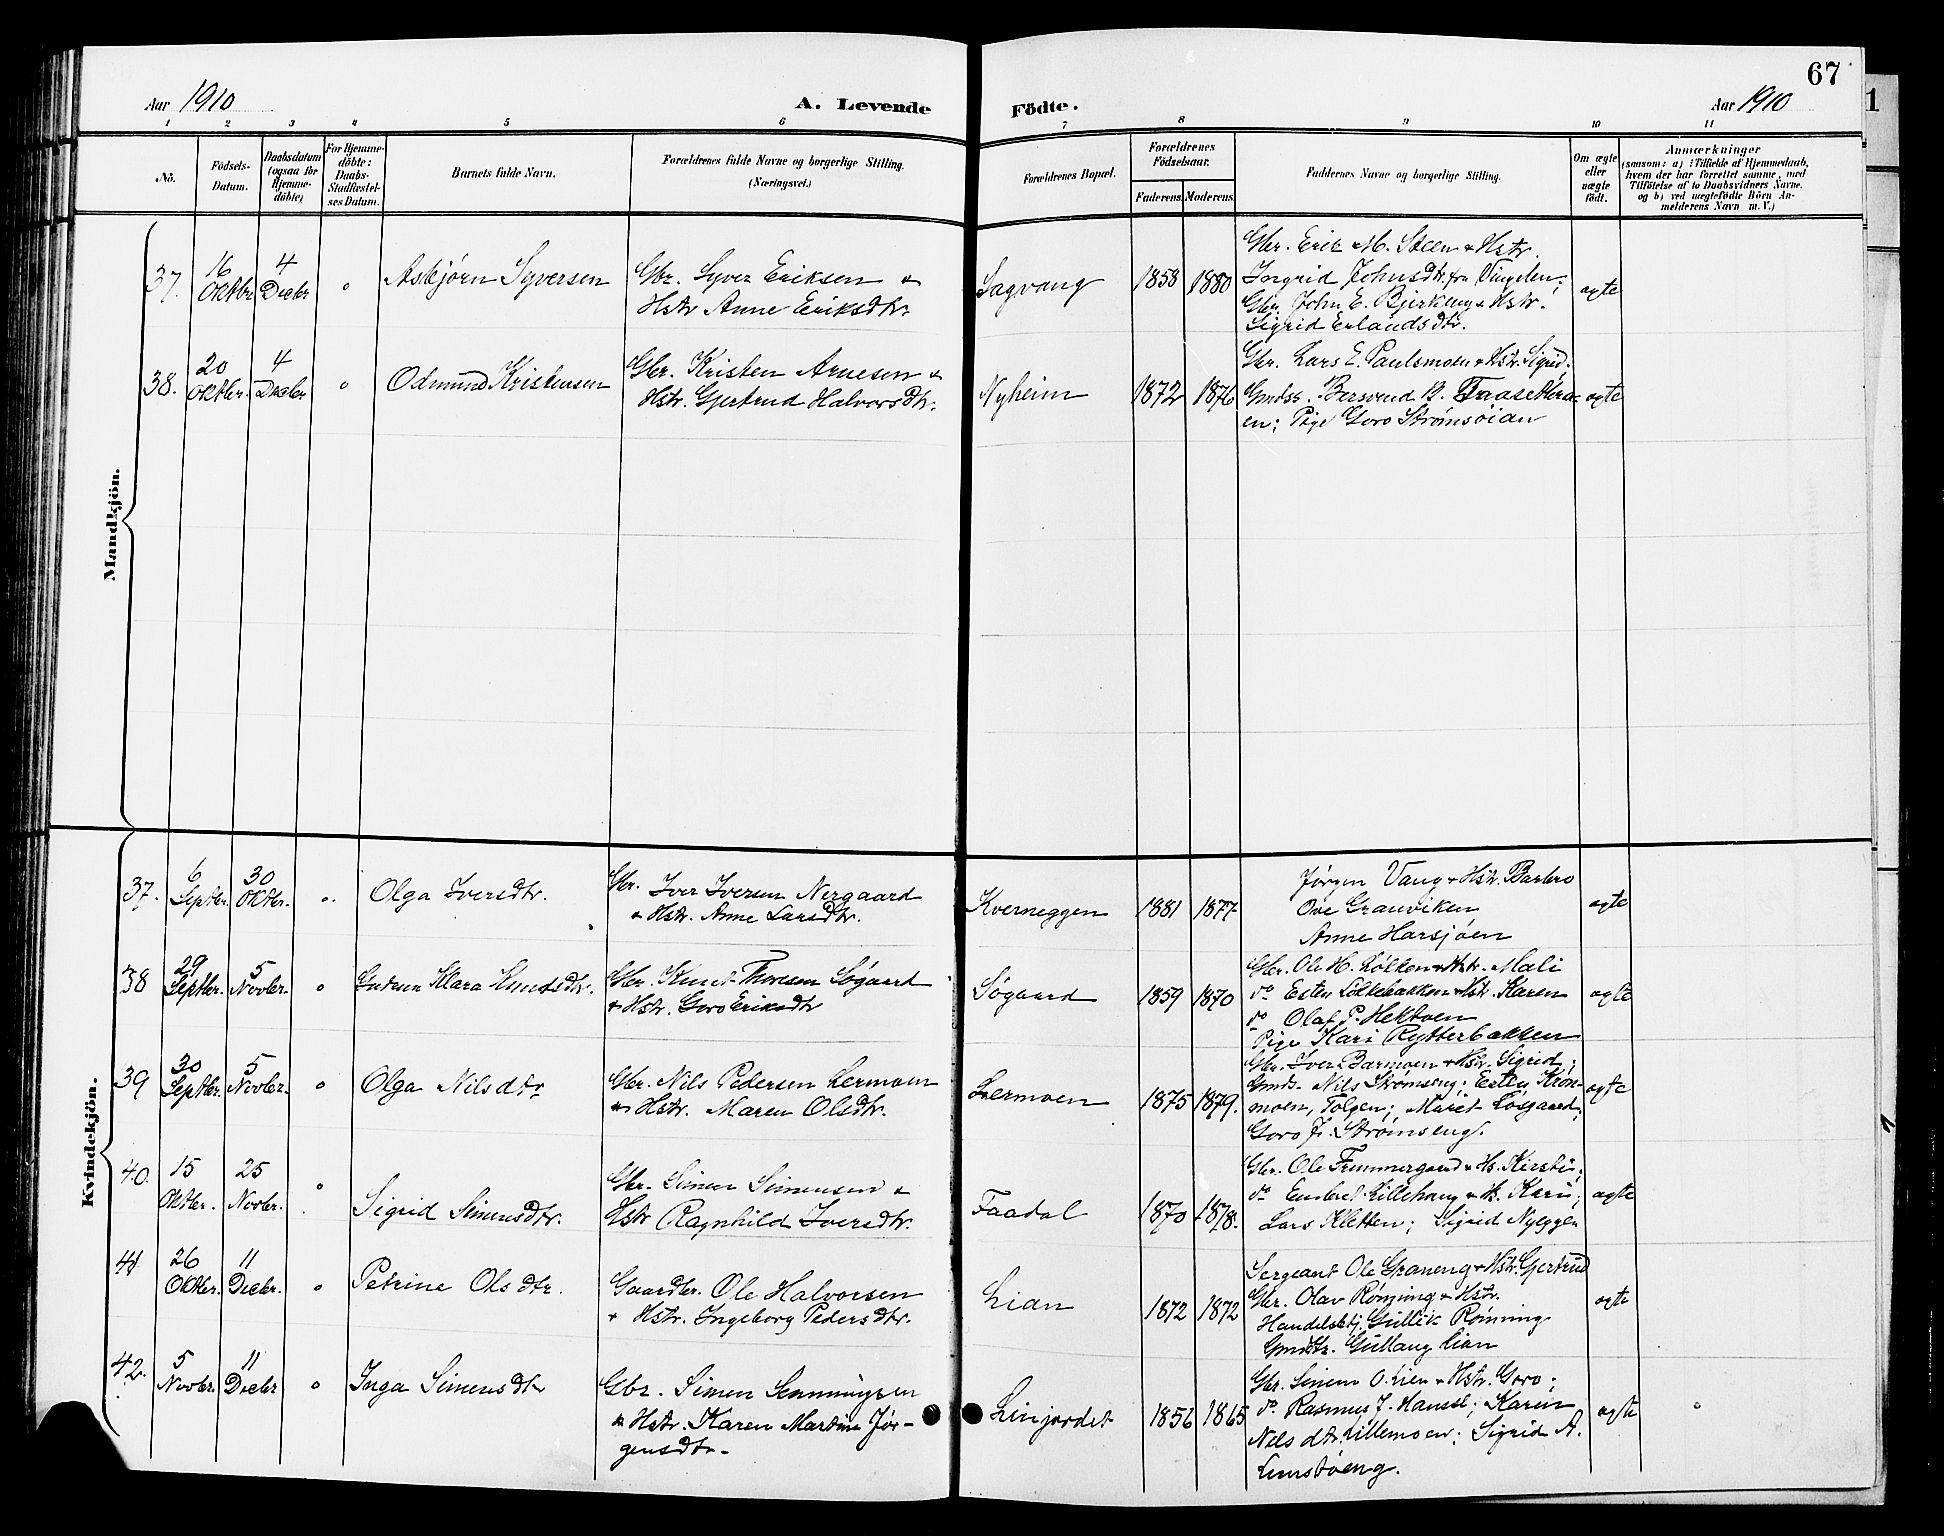 Aar 1910
A. Levende
Födte.
Aar 1910
67
1 2 3 4 5 6 7 8 9 10 11
No.
Födsels-
Datum.
Daabsdatum
(ogsaa for
Hjemme-
döbte)
For Hjemme-
döbte:
Daabs-
Stadfæstel-
ses Datum.
Barnets fulde Navn.
Forældrenes fulde Navne og borgerlige Stilling.
(Næringsvei.)
Forældrenes Bopæl.
Forældrenes
Födselsaar.
Faderens. Moderens.
Faddernes Navne og borgerlige Stilling.
Om ægte
eller
uægte
født.
Anmærkninger
(saasom: a) i Tilfælde af Hjemmedaab,
hvem der har forrettet samme, med
Tilföielse af to Daabsvidners Navne.
og b) ved uægtefödte Börn An-
melderens Navn m. V.)
Mandkjön.
37. 16 Oktbr 4 Decbr " Asbjørn Syversen
Gbr. Syver Eriksen &
Hstr Anne Eriksdtr.
Sagvang 1858 1880
Gbr. Erik M. Steen & Hstr.
Ingrid Johnsdtr. fra Vingelen;
Gbr. John E. Bjerkeng & Hstr.
Sigrid Erlandsdtr.
ægte
38. 20 Oktbr. 4 Decbr " Odmund Kristensen
Gbr. Kristen Arnesen &
Hstr. Gjertrud Halvorsdtr.
Nyheim 1872 1876
Gbr. Lars E. Paulsmoen & Hstr. Sigrid;
Gmdss. Bersvend P. Taasetera-
en; Pige Goro Strømsøian
ægte
Kvindekjön.
37. 6 Septbr. 30 Oktbr. " Olga Iversdtr.
Gbr. Iver Iversen Nergaard
& Hstr. Anne Larsdtr.
Kverneggen 1881 1877
Jørgen Vang & Hstr. Barbro
Ove Granviken
Anne Harsjøen
ægte
38 29 Septbr. 5 Novbr. " Gudrun Klara Knutsdtr.
Gbr. Knut Thoresen Søgaard
& Hstr. Goro Eriksdtr
Søgaard 1859 1870
Gbr. Ole H. Løkken & Hstr. Mali
do Esten Løkkebakken & Hstr. Karen
do Olaf P. Hektoen
Pige Kari Rytterbakken
ægte
39 30 Septbr. 5 Novbr. " Olga Nilsdtr
Gbr. Nils Pedersen Lermoen
& Hstr. Maren Olsdtr.
Lermoen 1875 1879.
Gbr. Iver Barmoen & Hstr. Sigrid;
Gmds. Nils Strømseng; Esten Kron-
moen, Tolgen; Marit Løsgaard;
Goro J. Strømseng.
ægte
40. 15 Oktbr. 25 Novbr. " Sigrid Simensdtr.
Gbr. Simen Simensen &
Hstr Ragnhild Iversdtr.
Faadal 1870 1878.
Gbr. Ole Frummergaard & Hs. Kirsti;
do Embret Lillehaug & Hs. Kari;
Lars Kletten; Sigrid Nyeggen
ægte
41 26 Oktbr. 11 Decbr. " Petrine Olsdtr.
Gaardbr. Ole Halvorsen
& Hstr. Ingeborg Pedersdtr.
Lian 1872 1872
Sergeant Ole Graneng & Hstr. Gjertrud
Gbr. Olav Rønning & Hstr.
Handelsbtj. Gullik Rønning
Gmdtr. Gullaug Lian
ægte
42. 5 Novbr. 11 Decbr " Inga Simensdtr
Gbr. Simen Semmingsen
& Hstr. Karen Martine Jør-
gensdtr.
Linjordet 1856 1865
Gbr. Simen O. Lien & Hstr. Goro;
do Rasmus J. Hansel; Karen
Nilsdtr. Lillemoen; Sigrid A.
ægte "